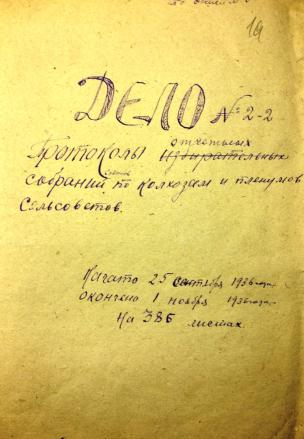 19
ДЕЛО № 2-2
отчетных
Протоколы избирательных
собраний по колхозам и пленумов
Сельсоветов.
Начато 25 сентября 1936 года
окончено 1 ноября 1936 года
На 386 листах